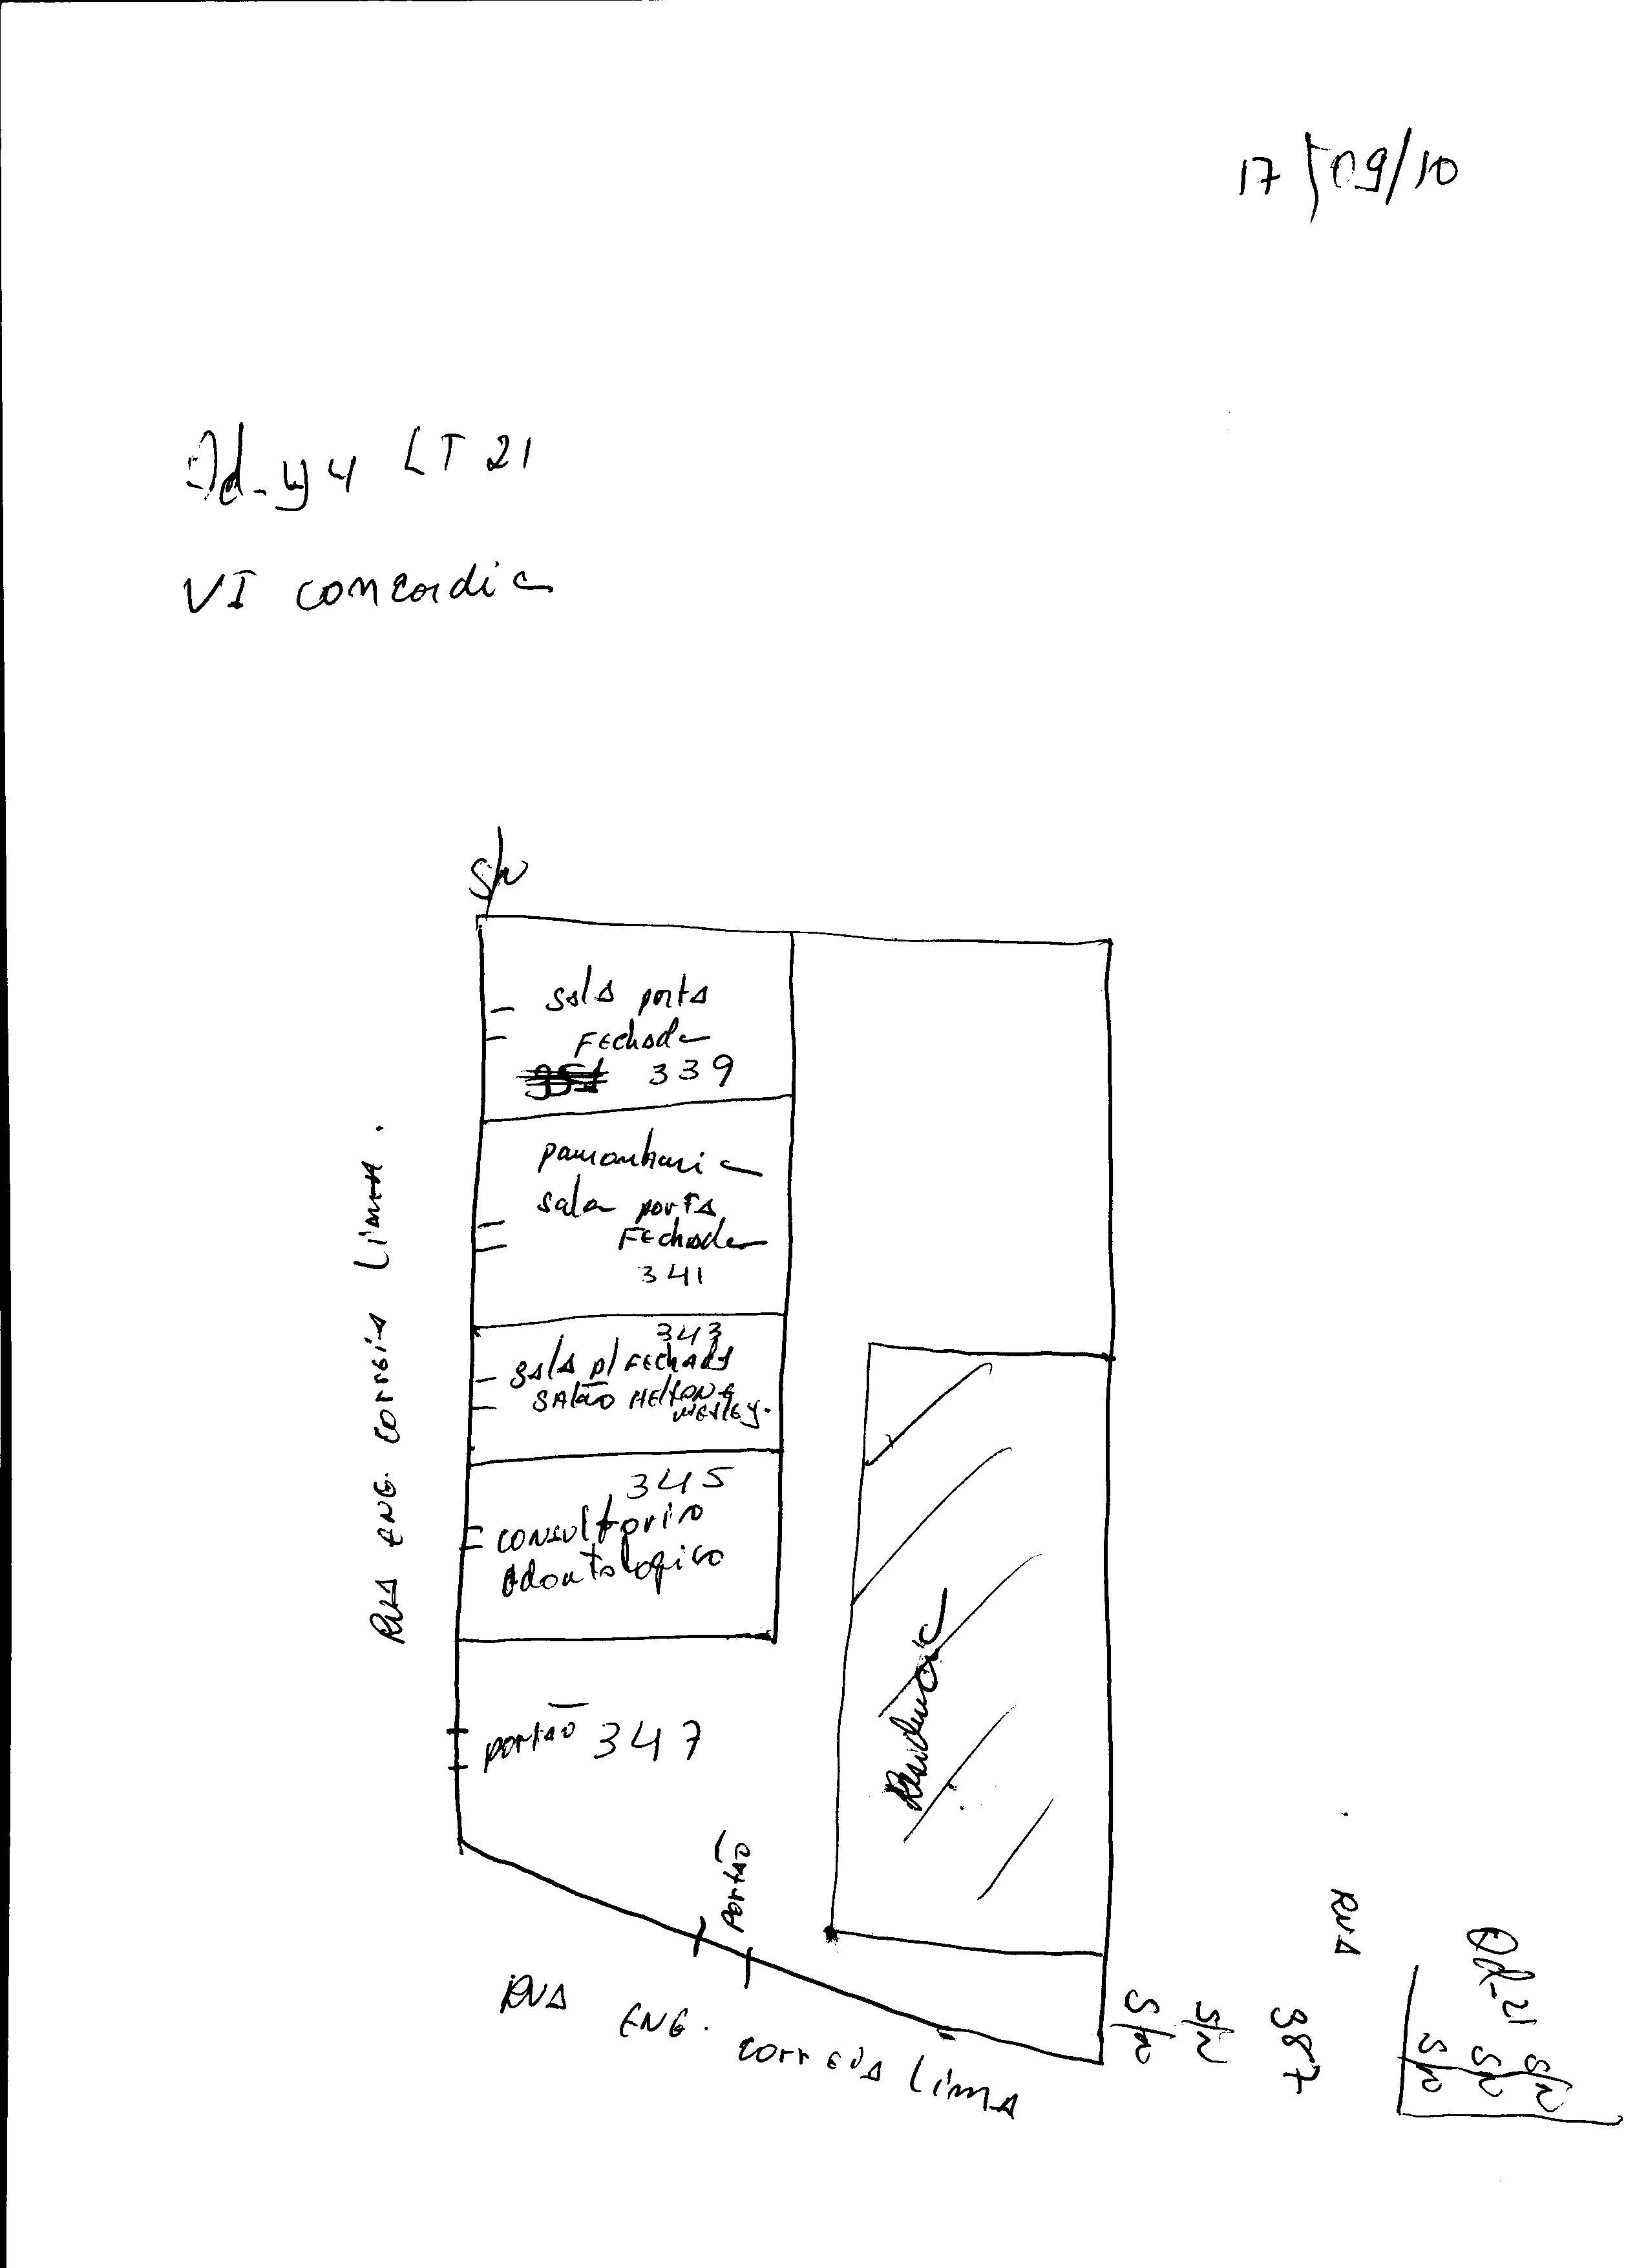 17/09/10
Qd-44 LT 21
VI concordia
S/N
sala porta
Fechada
339
pamonharia
sala porta
Fechada
341
343
sala p/ Fechada
salão Helton e
Wesley.
345
consultorio
odontologico
portão 347
Rua Eng. Correia Lima.
Residencia
portão
Rua Eng. Correia Lima
S/N
S/N
387
Rua
Qd-21
S/N
S/N
S/N